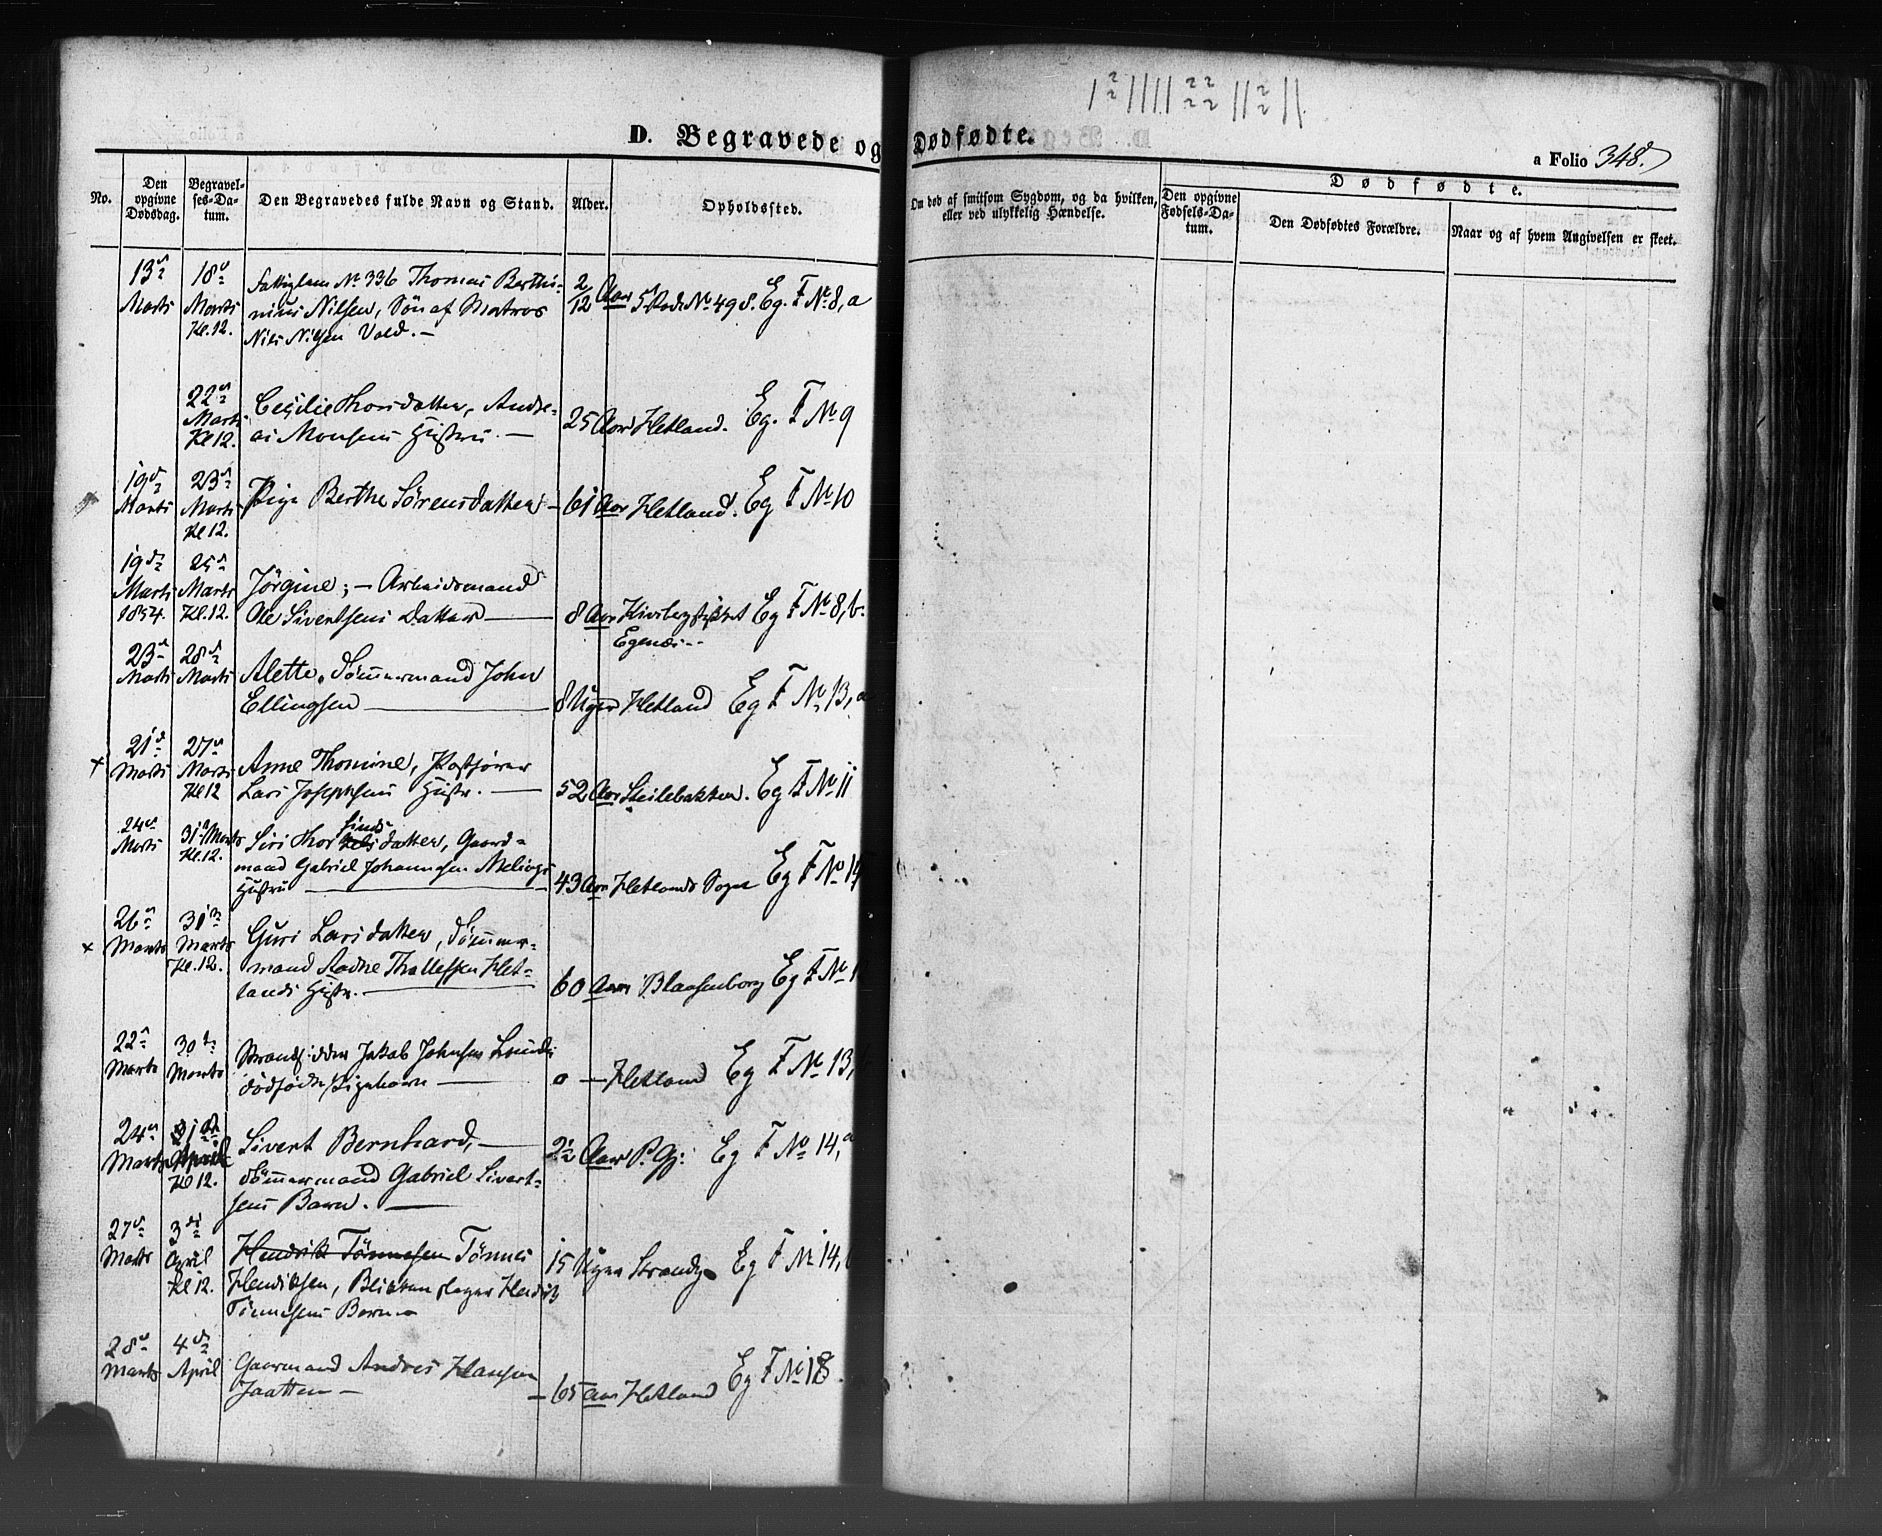 D. Begravede og Dødfødte.
a Folio 348.
No.
Den opgivne Dødsdag.
Begravelses-Datum.
Den Begravedes fulde Navn og Stand.
Alder.
Opholdssted.
Om død af smitsom Sygdom, og da hvilken, eller ved ulykkelig Hændelse.
Dødfødte.
Den opgivne Fødsels-Datum.
Den Dødfødtes Forældre.
Naar og af hvem Angivelsen er skeet.
13de 18de Fattiglem No 336 Thomas Berthi- 2
Marts Marts nius Nilsen, Søn af Matros 12 Aar 5te Rode No 498. Eg. F No 8, a
Kl. 12. Nils Nilsen Vold. —
22de
Marts Cecilie Thorsdatter, Andre-
Kl 12. as Monsens Hustru. — 25 Aar Hetland. Eg. F No 9
19de 23de
Marts Marts Pige Berthe Sørensdatter — 61 Aar Hetland. Eg F No 10
Kl 12.
19de 25de
Marts Marts Jørgine; — Arbeidsmand
1854. Kl. 12. Ole Sivertsens Datter — 8 Aar Eg F No 8, b.
Egenæs
23de 28de
Marts Marts Alette, Tømmermand John
Ellingsen — 8 Uger Hetland Eg F No 13, a
21de 27de
× Marts Marts Anne Thomine,
Kl 12 Lars Josephsens Hustr. — 52 Aar Steilebakken. Eg F No 11
24de 31te Marts Siri datter, Gaard-
Marts Kl. 12. mand Gabriel Johannesen Melings
Hustru — 43 Aar Hetlands Sogn Eg F No 14
26de 31te Guri Larsdatter, Tømmer-
× Marts Marts mand Aadne Thollefsen Het-
Kl. 12. lands Hustr. — 60 Aar Blaasenborg Eg F No 1
22de 30te Strandsidder Jakob Johnsen Lunds
Marts Marts dødfødte Pigebarn — 0 — Hetland Eg F No 13,
24de 31te Sivert Bernhard, — 2½ Aar P. Gj: Eg F No 14, a
Marts April Tømmermand Gabriel Sivert-
Kl 12. sens Barn. —
27de 3die
Marts April Hendrik Tønnesen Tønnes
Kl 12. Hendriksen, Blikkenslager Hendrik 15 Uger Strandg Eg F No 14,
Tønnesens Barn
28de 4de
Marts April Gaarmand Andreas Hansen
Jaatten — 65 Aar Hetland Eg F No 18.